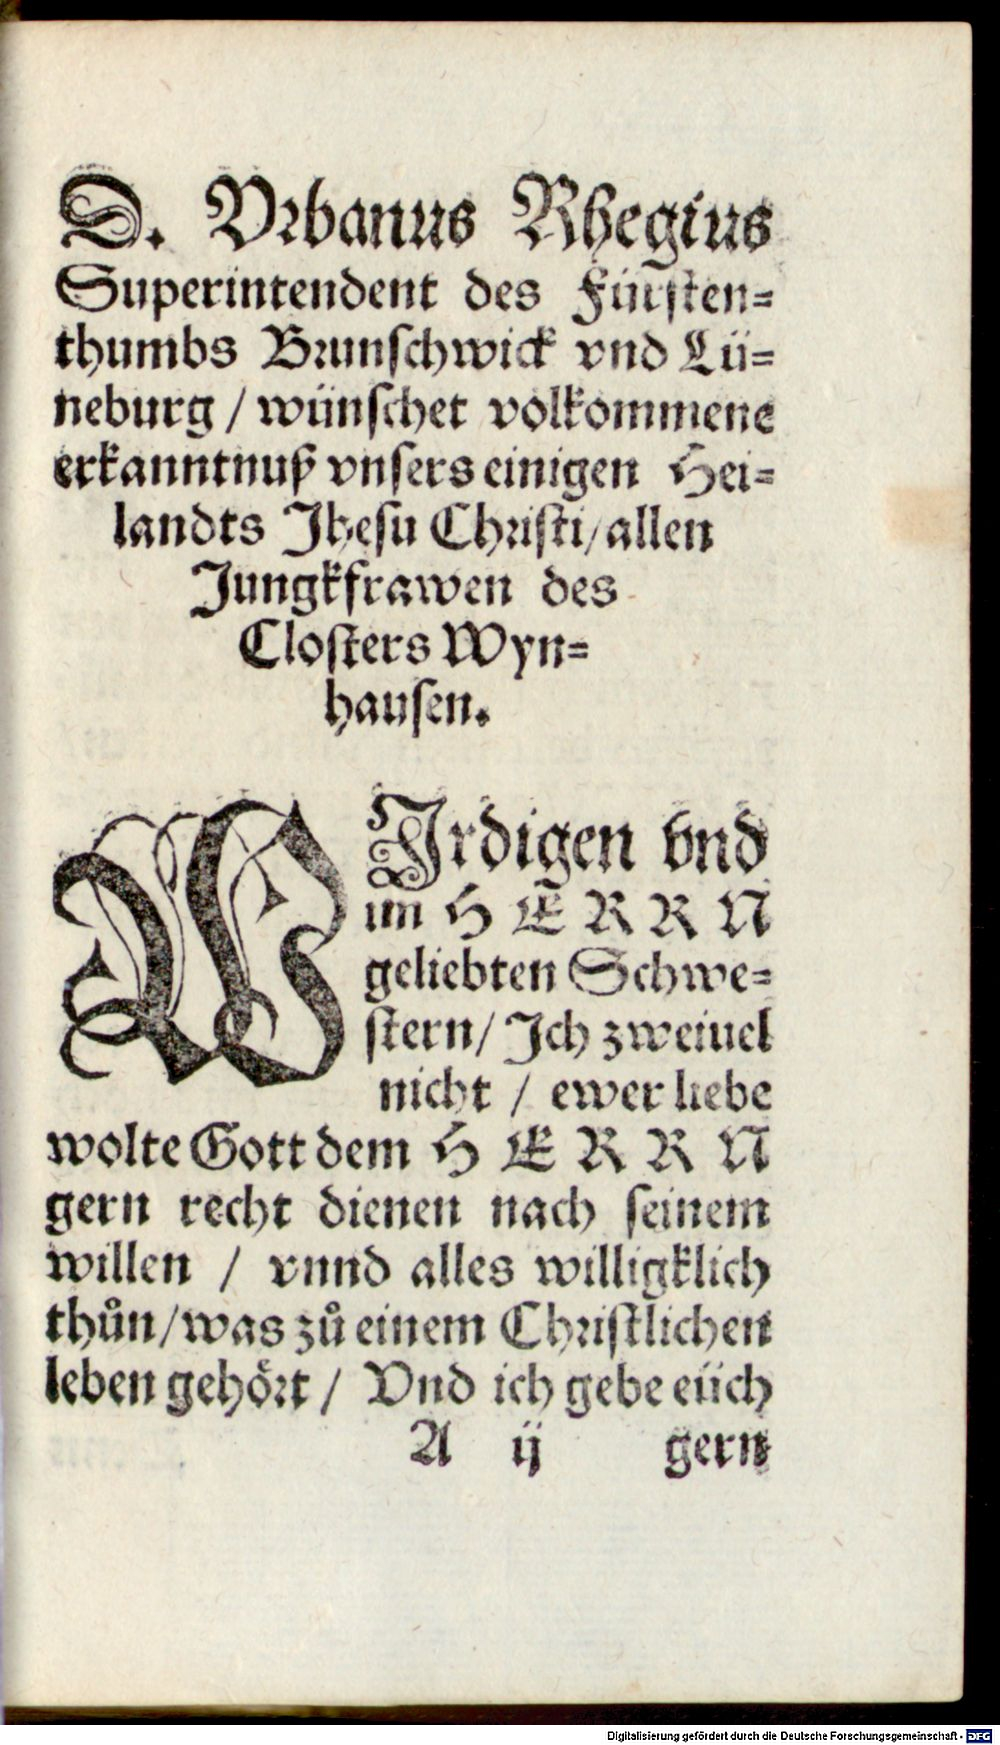 D. Vrbanus Rhegius
Superintendent des Fürsten=
thumbs Brunschwick vnd Lü=
neburg / wünschet volkommene
erkanntnuß vnsers einigen Hei=
landts Jhesu Christi / allen
Jungkfrawen des
Closters Wyn=
hausen.
WJrdigen vnd
im HERRN
geliebten Schwe=
stern / Jch zweiuel
nicht / ewer liebe
wolte Gott dem HERRN
gern recht dienen nach seinem
willen / vnnd alles willigklich
thůn / was zů einem Christlichen
leben gehört / Vnd ich gebe eüch
A ij gern
Digitalisierung gefördert durch die Deutsche Forschungsgemeinschaft - DFG